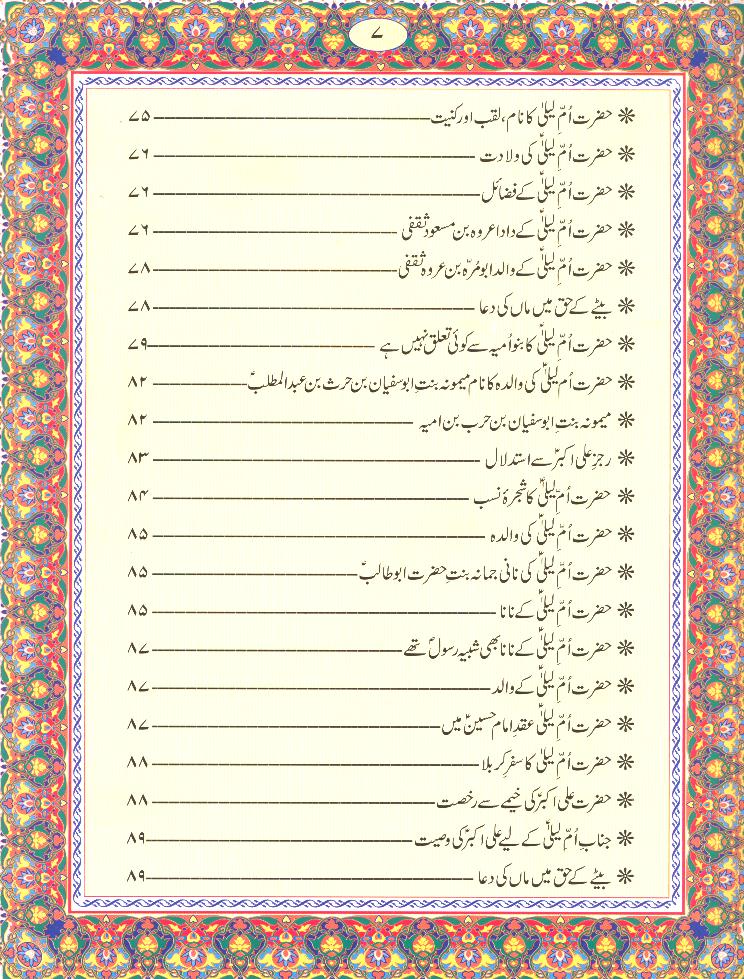 ۷
❋ حضرت اُمِّ لیلیٰؑ کا نام، لقب اور کنیت ۷۵
❋ حضرت اُمِّ لیلیٰؑ کی ولادت ۷۶
❋ حضرت اُمِّ لیلیٰؑ کے فضائل ۷۶
❋ حضرت اُمِّ لیلیٰؑ کے دادا عروہ بن مسعود ثقفی ۷۶
❋ حضرت اُمِّ لیلیٰؑ کے والد ابو مُرّہ بن عروہ ثقفی ۷۸
❋ بیٹے کے حق میں ماں کی دعا ۷۸
❋ حضرت اُمِّ لیلیٰؑ کا بنو اُمیہ سے کوئی تعلق نہیں ہے ۷۹
❋ حضرت اُم لیلیٰؑ کی والدہ کا نام میمونہ بنتِ ابو سفیان بن حرث بن عبدالمطلبؑ ۸۲
❋ میمونہ بنتِ ابو سفیان بن حرب بن امیہ ۸۲
❋ رجزِ علی اکبرؑ سے استدلال ۸۳
❋ حضرت اُمِّ لیلیٰؑ کا شجرۂ نسب ۸۴
❋ حضرت اُمِّ لیلیٰؑ کی والدہ ۸۵
❋ حضرت اُمِّ لیلیٰؑ کی نانی جمانہ بنتِ حضرت ابو طالبؑ ۸۵
❋ حضرت اُمِّ لیلیٰؑ کے نانا ۸۵
❋ حضرت اُمِّ لیلیٰؑ کے نانا بھی شبیہِ رسولؐ تھے ۸۷
❋ حضرت اُمِّ لیلیٰؑ کے والد ۸۷
❋ حضرت اُمِّ لیلیٰؑ عقدِ امام حسینؑ میں ۸۷
❋ حضرت اُمِّ لیلیٰؑ کا سفرِ کربلا ۸۸
❋ حضرت علی اکبرؑ کی خیمے سے رخصت ۸۸
❋ جنابِ اُمِّ لیلیٰؑ کے لیے علی اکبرؑ کی وصیت ۸۹
❋ بیٹے کے حق میں ماں کی دعا ۸۹